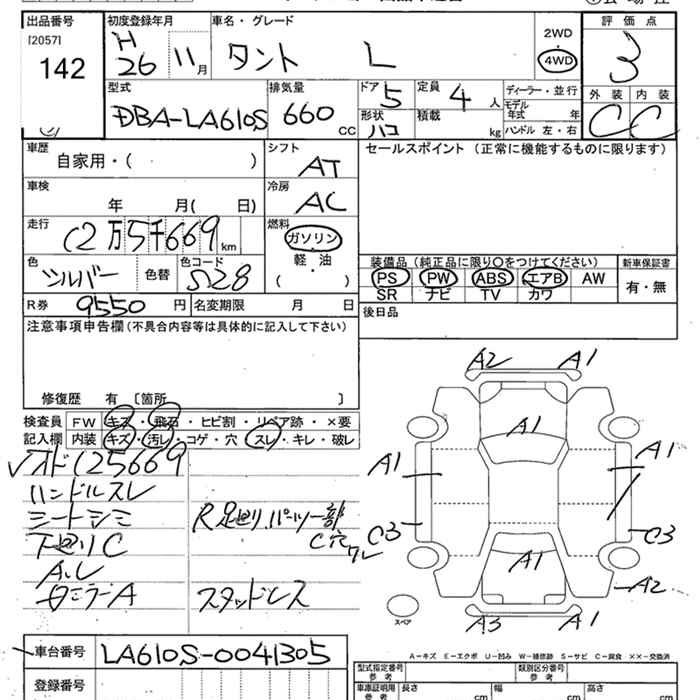 出品番号 初度登録年月 車名・グレード 2WD 評価点
[2057] H
142 26 11月 タント L 4WD 3
型式 排気量 ドア 定員 ディーラー・並行 外装 内装
DBA-LA610S 660 CC 5 4人 モデル年式 年 C C
形状 積載 ハンドル 左・右
ハコ kg
車歴 シフト セールスポイント (正常に機能するものに限ります)
自家用・( ) AT
車検 冷房
年 月( 日) AC
走行 燃料
12万5千669km ガソリン
色 色コード 軽・油
シルバー 色替 S28 ( ・ )
装備品(純正品に限り○をつけてください) 新車保証書
PS PW ABS エアB AW 有・無
SR ナビ TV カワ
R券 9550円 名変期限 月 日 後日品
注意事項申告欄(不具合内容等は具体的に記入して下さい)
修復歴 有 〔箇所 〕
検査員 FW キズ・飛石・ヒビ割・リペア跡・×要
記入欄 内装 キズ・汚レ・コゲ・穴・スレ・キレ・破レ
√オド125669
ハンドルスレ
シートシミ R足廻りパーツ一部
下廻りC C穴
A.ル
スタッドレス
A2 A1
A1
A1 A1
C3 C3
A1
A2
A3 A1
スペア
A-キズ E-エクボ U-凹み W-補修跡 S-サビ C-腐食 ××-交換済
車台番号 LA610S-0041305
登録番号
型式指定番号 参考 類別区分番号 参考
車庫証明用 参考 長さ cm 幅 cm 高さ cm